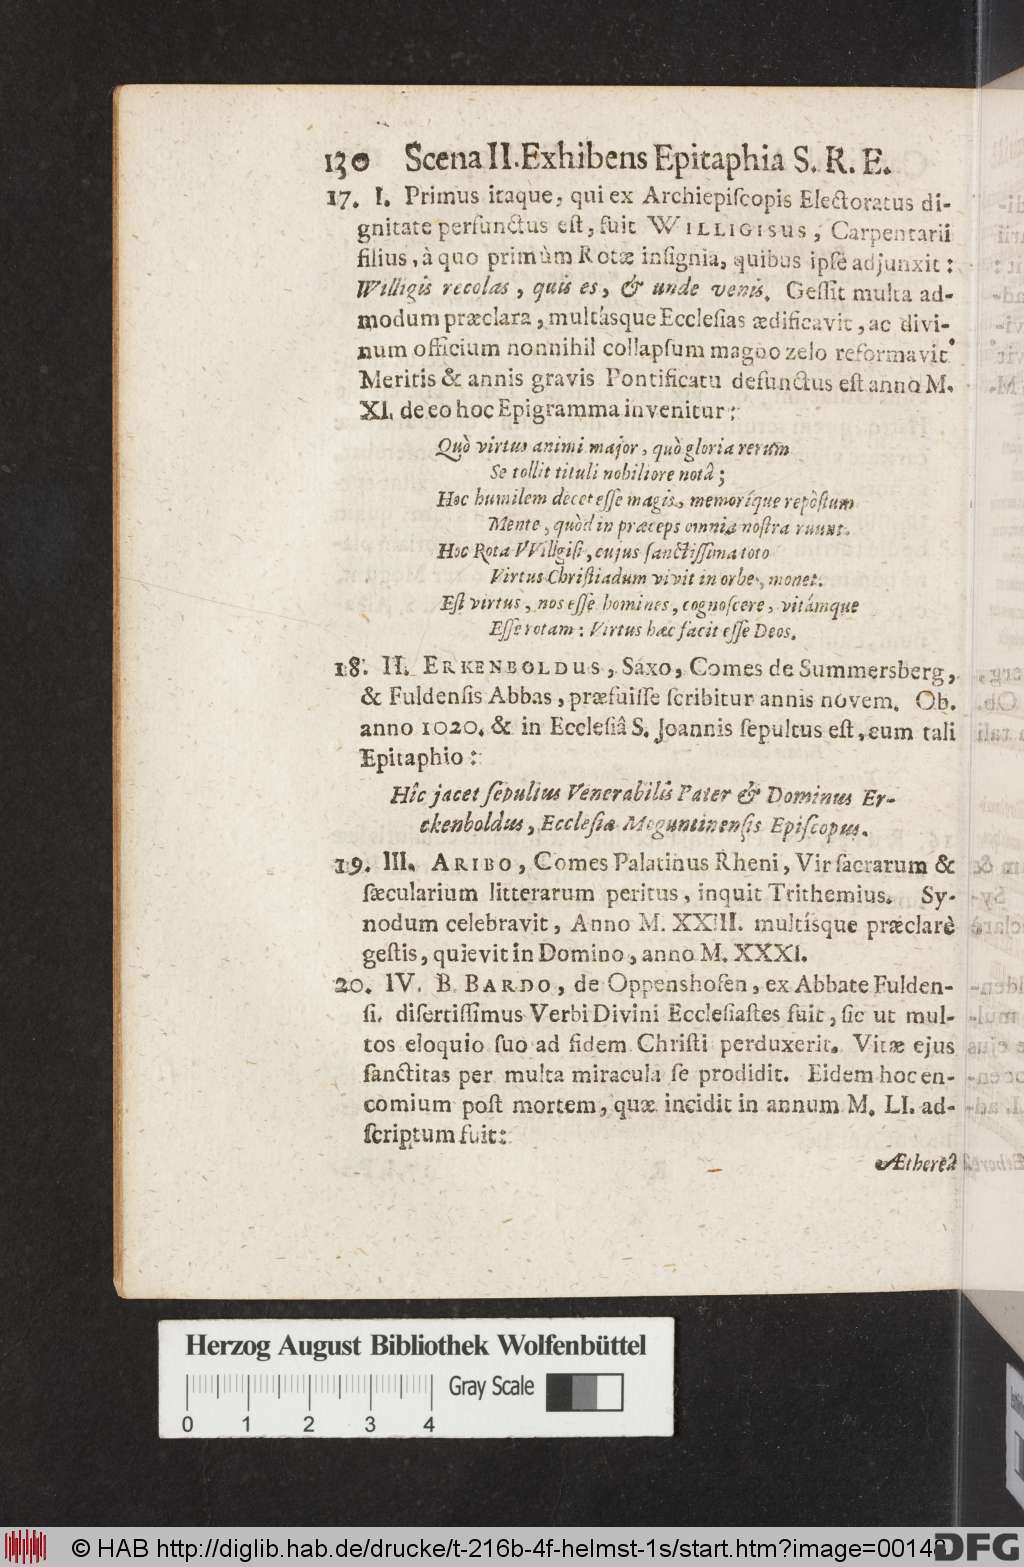 130 Scena II. Exhibens Epitaphia S. R. E.
17. I. Primus itaque, qui ex Archiepiſcopis Electoratus di-
gnitate perfunctus eſt, fuit WILLIGISUS, Carpentarii
filius, à quo primùm Rotæ inſignia, quibus ipſe adjunxit:
Willigis recolas, quis es, & unde venis. Geſſit multa ad-
modum præclara, multásque Eccleſias ædificavit, ac divi-
num officium nonnihil collapſum magno zelo reformavit.
Meritis & annis gravis Pontificatu defunctus eſt anno M.
XI. de eo hoc Epigramma invenitur:
Quò virtus animi major, quò gloria rerum
Se tollit tituli nobiliore notâ;
Hoc humilem decet eſſe magis, memoríque repòſtum
Mente, quòd in præceps omnia noſtra ruunt.
Hoc Rota VVilligiſi, cujus ſanctiſſima toto
Virtus Chriſtiadum vivit in orbe, monet.
Eſt virtus, nos eſſe homines, cognoſcere, vitámque
Eſſe rotam: Virtus hæc facit eſſe Deos.
18. II. ERKENBOLDUS, Saxo, Comes de Summersberg,
& Fuldenſis Abbas, præfuiſſe ſcribitur annis novem. Ob.
anno 1020. & in Eccleſiâ S. Joannis ſepultus eſt, cum tali
Epitaphio:
Hîc jacet ſepultus Venerabilis Pater & Dominus Er-
ckenboldus, Eccleſiæ Moguntinenſis Epiſcopus.
19. III. ARIBO, Comes Palatinus Rheni, Vir ſacrarum &
ſæcularium litterarum peritus, inquit Trithemius. Sy-
nodum celebravit, Anno M. XXIII. multísque præclarè
geſtis, quievit in Domino, anno M. XXXI.
20. IV. B. BARDO, de Oppenshofen, ex Abbate Fulden-
ſi. diſertiſſimus Verbi Divini Eccleſiaſtes fuit, ſic ut mul-
tos eloquio ſuo ad fidem Chriſti perduxerit. Vitæ ejus
ſanctitas per multa miracula ſe prodidit. Eidem hoc en-
comium poſt mortem, quæ incidit in annum M. LI. ad-
ſcriptum fuit:
Æthereâ
Herzog August Bibliothek Wolfenbüttel
Gray Scale
0 1 2 3 4
© HAB http://diglib.hab.de/drucke/t-216b-4f-helmst-1s/start.htm?image=00148
DFG